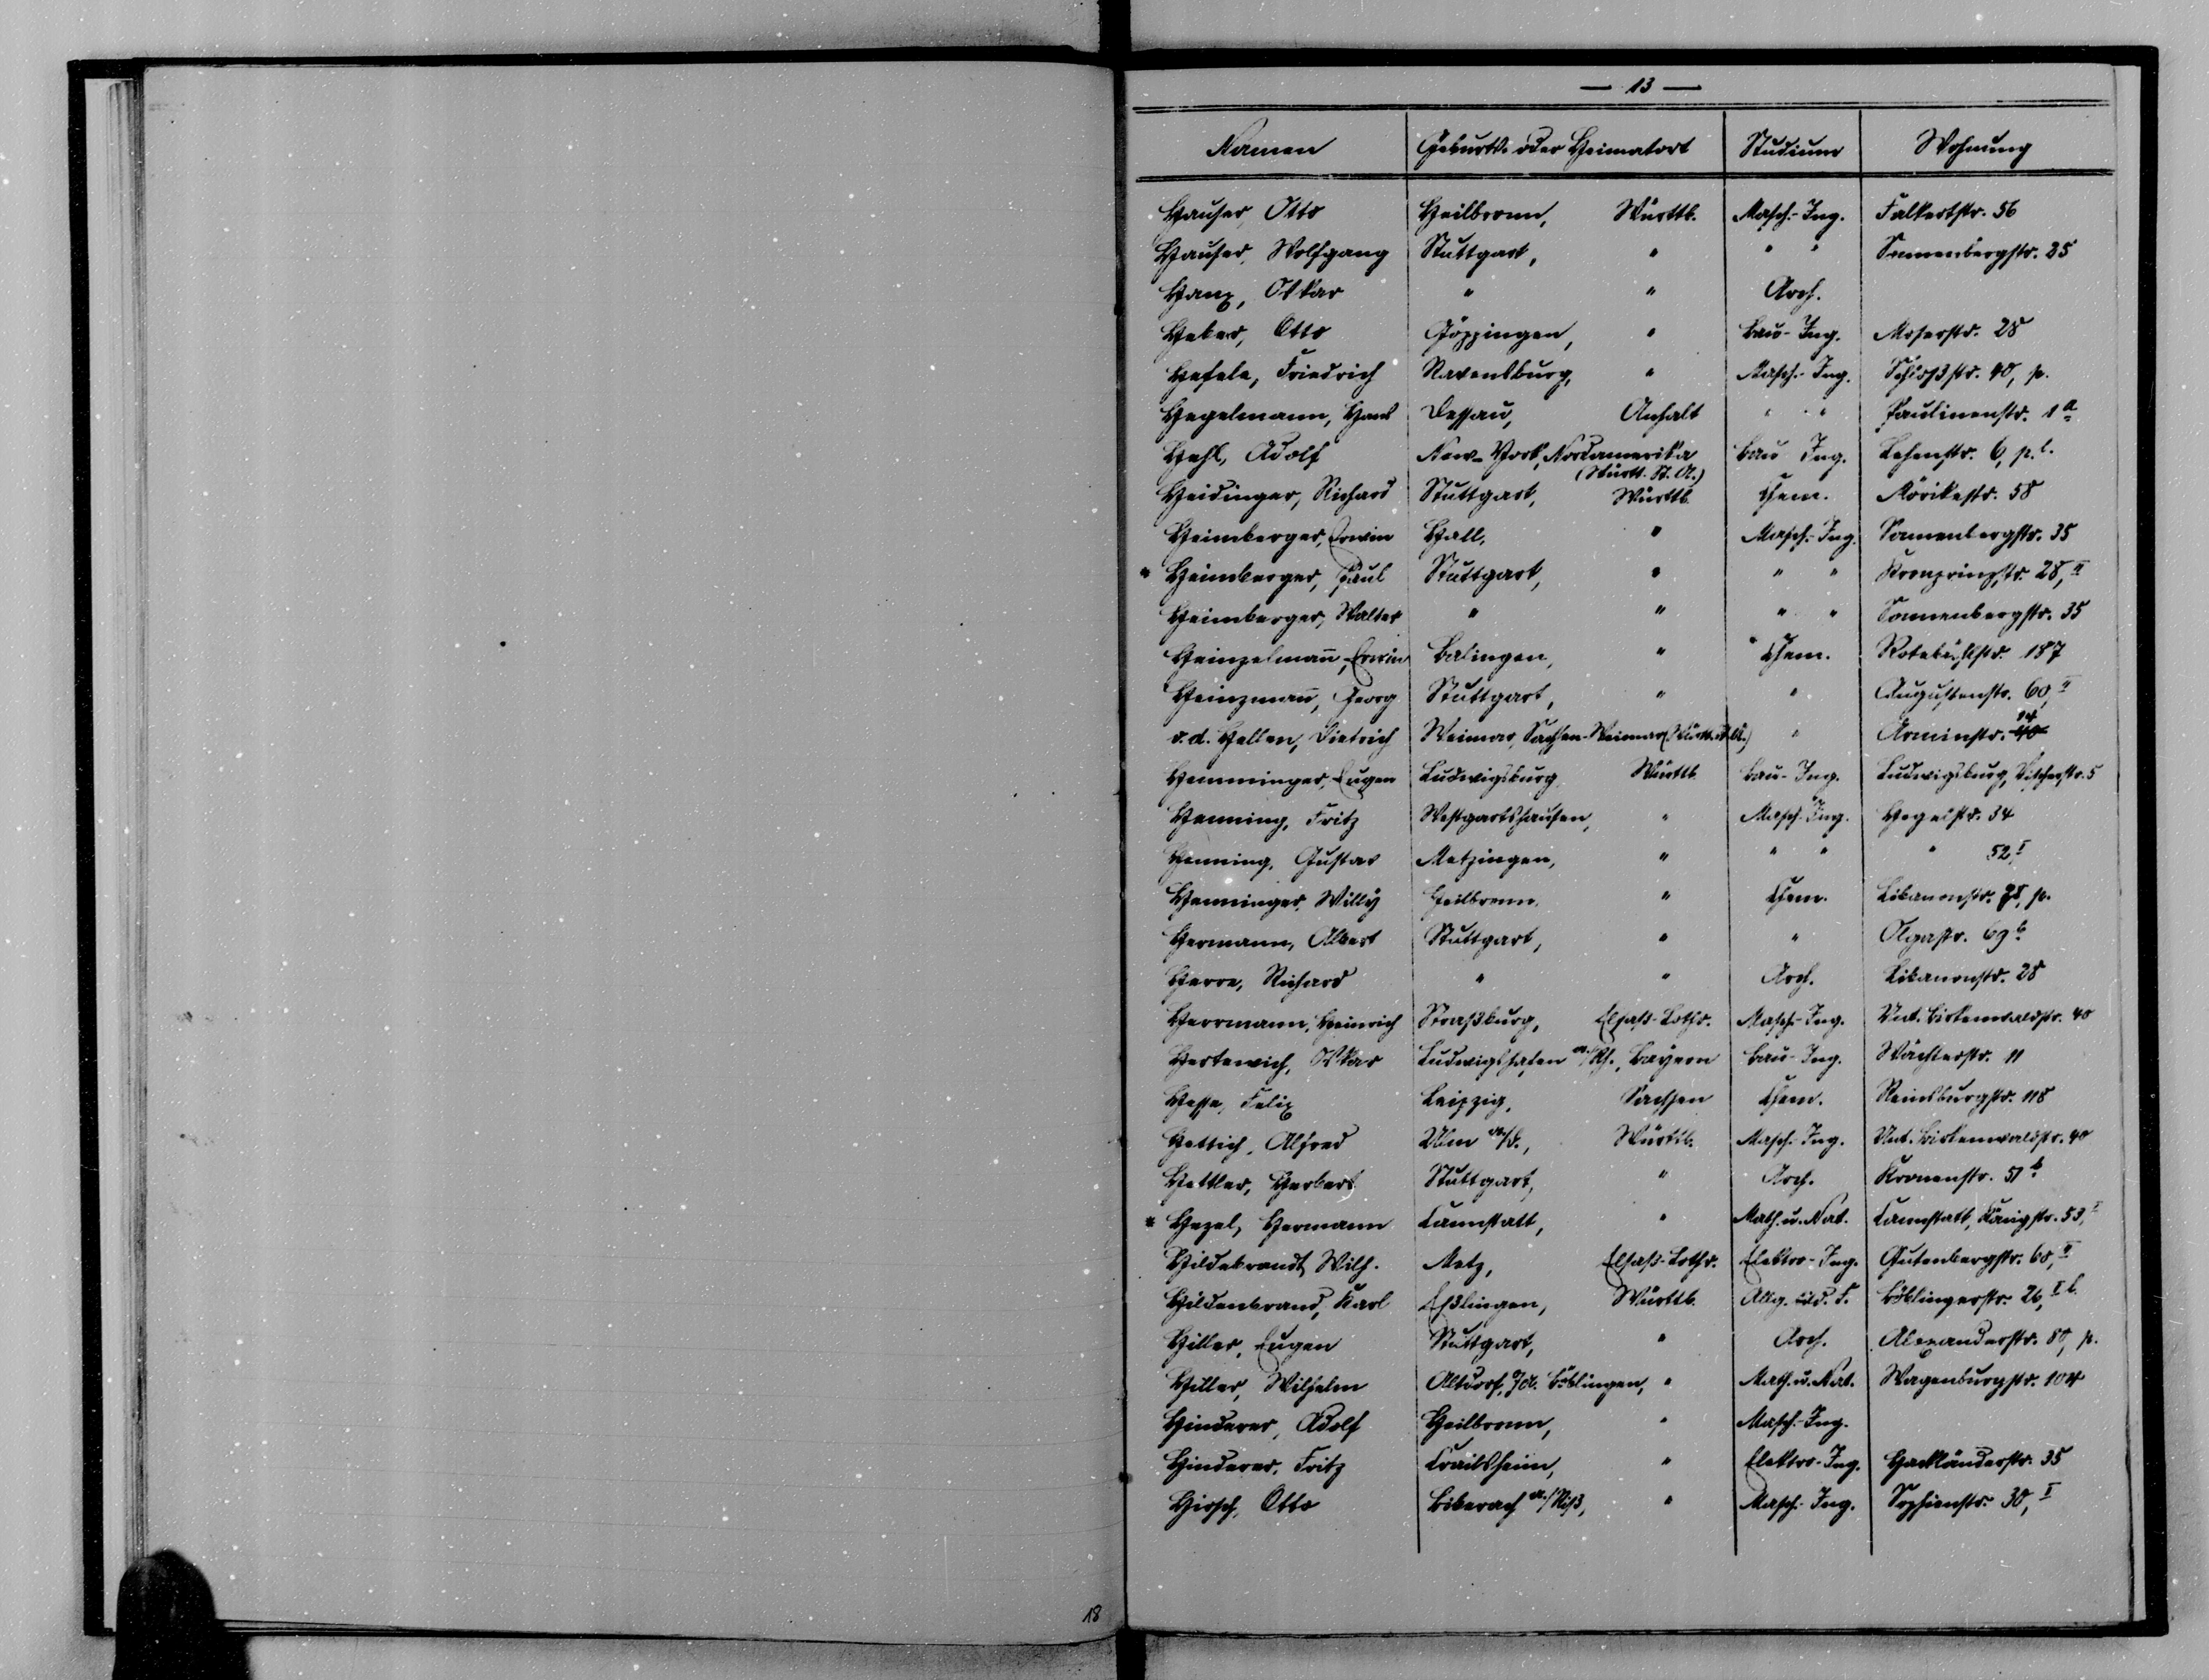 — 13 —
Namen Geburts- oder Heimatort Studium Wohnung
Hauser, Otto Heilbronn, Württb. Masch.-Ing. Falkertstr. 56
Hauser, Wolfgang Stuttgart, " " " Sonnenbergstr. 25
Hanx, Oskar " " Arch.
Heker, Otto Göppingen, " Bau-Ing. Moserstr. 28
Hefele, Friedrich Ravensburg, " Masch.-Ing. Schloßstr. 40, p.
Hegelmann, Hans Dessau, Anhalt " " Paulinenstr. 1a
Hehl, Adolf New-York, Nordamerika Bau Ing. Lehenstr. 6, p. l.
(Württ. St. A.)
Heidinger, Richard Stuttgart, Württb. Chem. Mörikestr. 58
Heimberger, Erwin Hall, " Masch.-Ing. Sonnenbergstr. 35
* Heimberger, Paul Stuttgart, " " " Kronprinzstr. 28, II
Heimberger, Walter " " " " Sonnenbergstr. 35
Heinzelmann, Erwin Balingen, " Chem. Rotebühlstr. 187
Heinzmann, Georg Stuttgart, " " Augustenstr. 60, II
v. d. Hellen, Dietrich Weimar, Sachsen-Weimar (Württ. St. A.) " Arminstr. 14
Hemminger, Eugen Ludwigsburg, Württb. Bau-Ing. Ludwigsburg, Vischerstr. 5
Henning, Fritz Westgartshausen, " Masch.-Ing. Hegelstr. 34
Henning, Gustav Metzingen, " " " " 52 I
Henninger, Willy Heilbronn, " Chem. Libanonstr. 78, p.
Hermann, Albert Stuttgart, " " Olgastr. 69 b
Herre, Richard " " Arch. Libanonstr. 28
Herrmann, Heinrich Straßburg, Elsaß-Lothr. Masch.-Ing. Unt. Birkenwaldstr. 40
Hertewich, Oskar Ludwigshafen a./Rh., Bayern Bau-Ing. Wächterstr. 11
Hesse, Felix Leipzig, Sachsen Chem. Reinsburgstr. 118
Hettich, Alfred Ulm a./D., Württb. Masch.-Ing. Unt. Birkenwaldstr. 40
Hettler, Herbert Stuttgart, " Arch. Kronenstr. 51 b
* Hezel, Hermann Cannstatt, " Math. u. Nat. Cannstatt, Königstr. 53, I
Hildebrandt, Wilh. Metz, Elsaß-Lothr. Elektro-Ing. Gutenbergstr. 68, II
Hildenbrand, Karl Eßlingen, Württb. Allg. bild. F. Böblingerstr. 26, I l.
Hiller, Eugen Stuttgart, " Arch. Alexanderstr. 80, p.
Hiller, Wilhelm Altdorf, O/A. Böblingen, " Math. u. Nat. Wagenburgstr. 104
Hinderer, Adolf Heilbronn, " Masch.-Ing.
Hinderer, Fritz Crailsheim, " Elektro-Ing. Hackländerstr. 35
Hirsch, Otto Biberach a./Riß, " Masch.-Ing. Sophienstr. 30, I
18